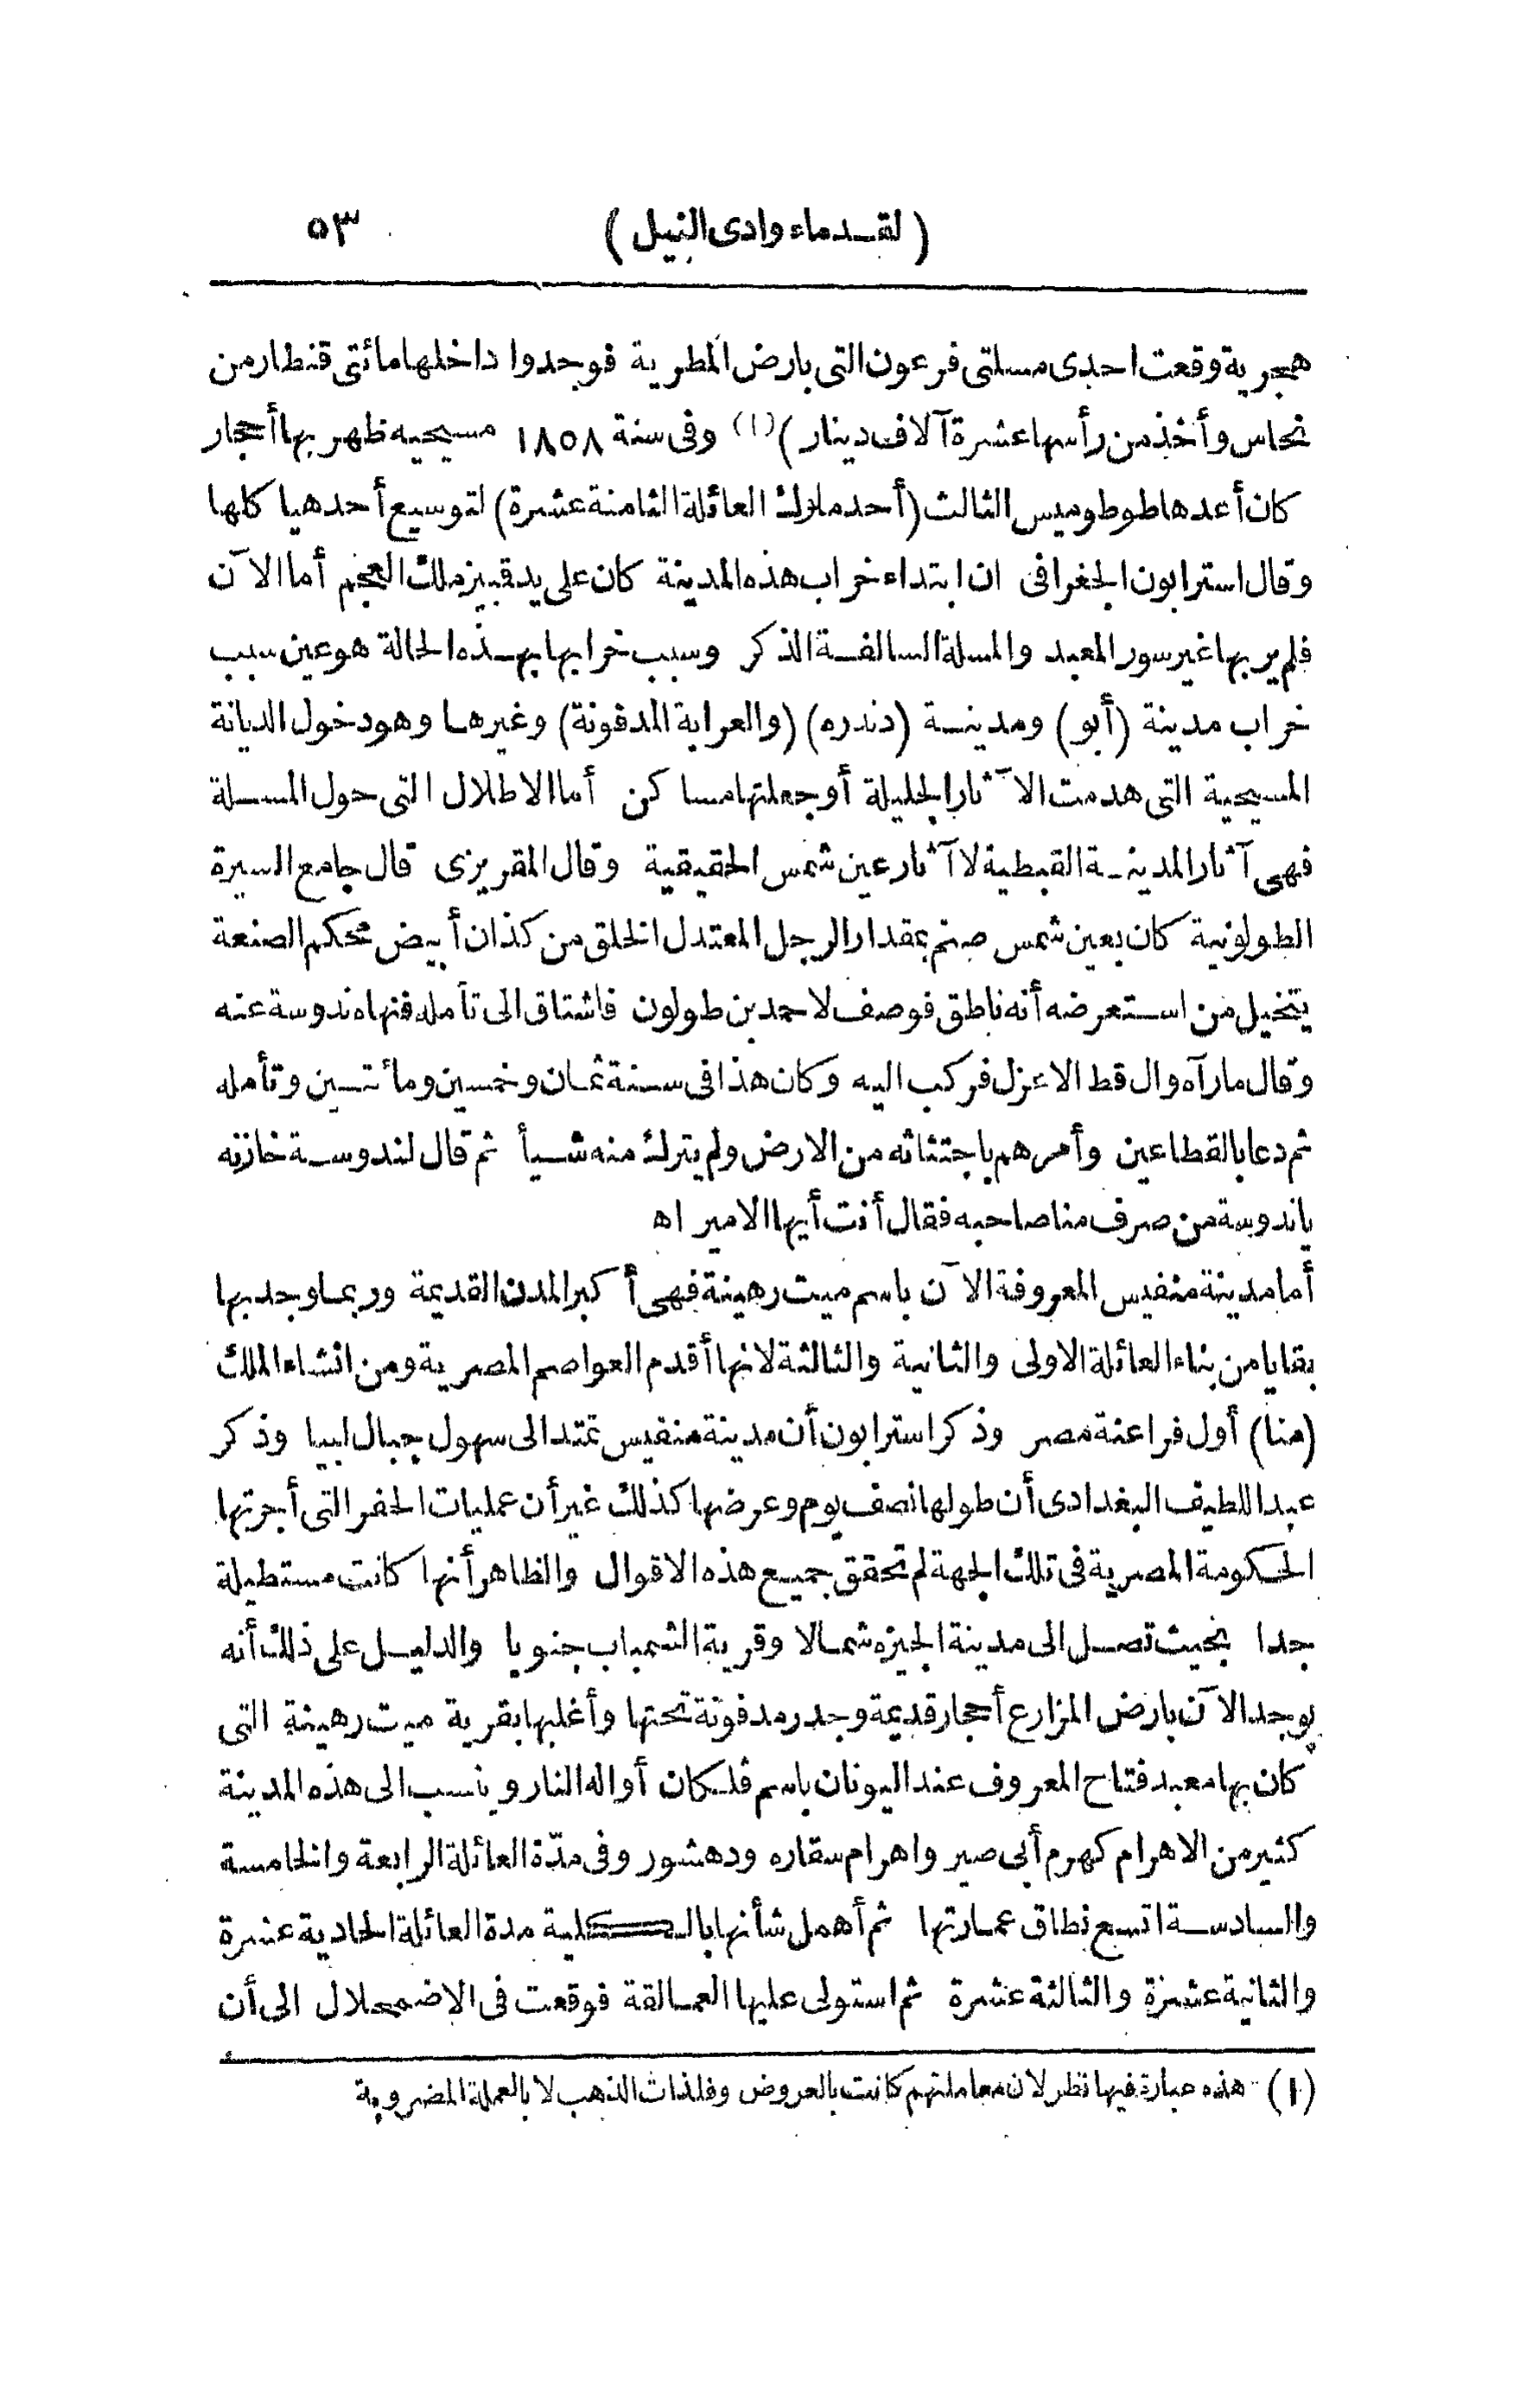 (لقدماء وادى النيل) ٥٣
هجرية وقعت احدى مسلتى فرعون التى بارض المطرية فوجدوا داخلها مائتى قنطار من
نحاس وأخذ من رأسها عشرة آلاف دينار) (١) وفى سنة ١٨٥٨ مسيحيه ظهر بها أحجار
كان أعدها طوطوميس الثالث (أحد ملوك العائلة الثامنة عشرة) لتوسيع أحد هيا كلها
وقال استرابون الجغرافى ان ابتداء خراب هذه المدينة كان على يد قبيز ملك العجم أما الآن
فلم ير بها غير سور المعبد والمسلة السالفة الذكر وسبب خرابها بهذه الحالة هو عين سبب
خراب مدينة (أبو) ومدينة (دندره) (والعرابة المدفونة) وغيرها وهو دخول الديانة
المسيحية التى هدمت الآثار الجليلة أو جعلتها مساكن أما الاطلال التى حول المسلة
فهى آثار المدينة القبطية لا آثار عين شمس الحقيقية وقال المقريزى قال جامع السيرة
الطولونية كان بعين شمس صنم بمقدار الرجل المعتدل الخلق من كذان أبيض محكم الصنعة
يتخيل من استعرضه أنه ناطق فوصف لاحمد بن طولون فاشتاق الى تأمله فنهاه ندوسة عنه
وقال ما رآه وال قط الا عزل فركب اليه وكان هذا فى سنة ثمان وخمسين ومائتين وتأمله
ثم دعا بالقطاعين وأمرهم باجتثاثه من الارض ولم يترك منه شيأ ثم قال لندوسة خازنه
ياندوسة من صرف منا صاحبه فقال أنت أيها الامير اه
أما مدينة منفيس المعروفة الآن باسم ميت رهينة فهى أكبر المدن القديمة وربما وجد بها
بقايا من بناء العائلة الاولى والثانية والثالثة لانها أقدم العواصم المصرية ومن انشاء الملك
(منا) أول فراعنة مصر وذكر استرابون أن مدينة منفيس تمتد الى سهول جبال لبيا وذكر
عبد اللطيف البغدادى أن طولها نصف يوم وعرضها كذلك غير أن عمليات الحفر التى أجرتها
الحكومة المصرية فى تلك الجهة لم تحقق جميع هذه الاقوال والظاهر أنها كانت مستطيلة
جدا بحيث تصل الى مدينة الجيزه شمالا وقرية الشمباب جنوبا والدليل على ذلك أنه
يوجد الآن بارض المزارع أحجار قديمة وجدر مدفونة تحتها وأغلبها بقرية ميت رهينة التى
كان بها معبد فتاح المعروف عند اليونان باسم فلكان أو اله النار وينسب الى هذه المدينة
كثير من الاهرام كهرم أبى صير واهرام سقاره ودهشور وفى مدّة العائلة الرابعة والخامسة
والسادسة اتسع نطاق عمارتها ثم أهمل شأنها بالكلية مدة العائلة الحادية عشرة
والثانية عشرة والثالثة عشرة ثم استولى عليها العمالقة فوقعت فى الاضمحلال الى أن
(١) هذه عبارة فيها نظر لان معاملتهم كانت بالعروض وفلذات الذهب لا بالعملة المضروبة